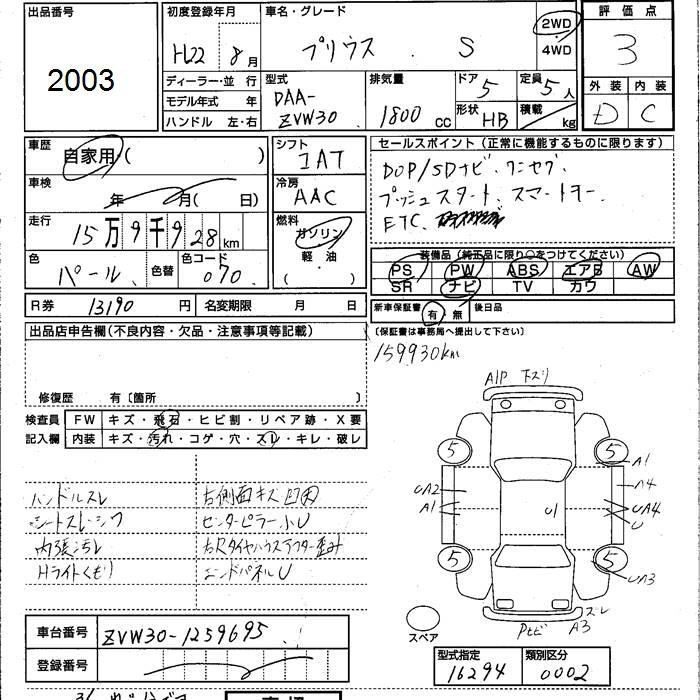 出品番号
2003
初度登録年月
H22 8月
車名・グレード
プリウス . S
2WD
4WD
評価点
3
外装 内装
D C
ディーラー・並行
モデル年式 年
ハンドル 左・右
型式
DAA-
ZVW30
排気量
1800 CC
ドア 5
形状 HB
定員 5人
積載 kg
車歴
自家用・( )
車検
年 月( 日)
走行
15万9千928km
色
パール
色替
色コード
070
シフト
IAT
冷房
AAC
燃料
ガソリン
軽油
( )
セールスポイント(正常に機能するものに限ります)
DOP/SDナビ、ワンセグ
プッシュスタート、スマートキー
ETC
装備品(純正品に限り○をつけてください)
PS PW ABS エアB AW
SR ナビ TV カワ
R券 13190円
名変期限 月 日
新車保証書 有・無
後日品
(保証書は事務局へ提出して下さい)
出品店申告欄(不良内容・欠品・注意事項等記載)
修復歴 有〔箇所 〕
159930km
検査員
記入欄
FW キズ・飛石・ヒビ割・リペア跡・X要
内装 キズ・汚れ・コゲ・穴・スレ・キレ・破レ
ハンドルスレ
シートスレ・シワ
内張汚レ
Hライトくもり
右側面キズ凹
センターピラー小U
右Rタイヤハウスアフター歪み
エンドパネルU
A1P 下スリ
5
5
A1
UA2
A1
A4
UA4
U
U1
5
5
UA3
スレ
Pヒビ A3
スペア
車台番号
ZVW30-1259695
登録番号
型式指定
16294
類別区分
0002